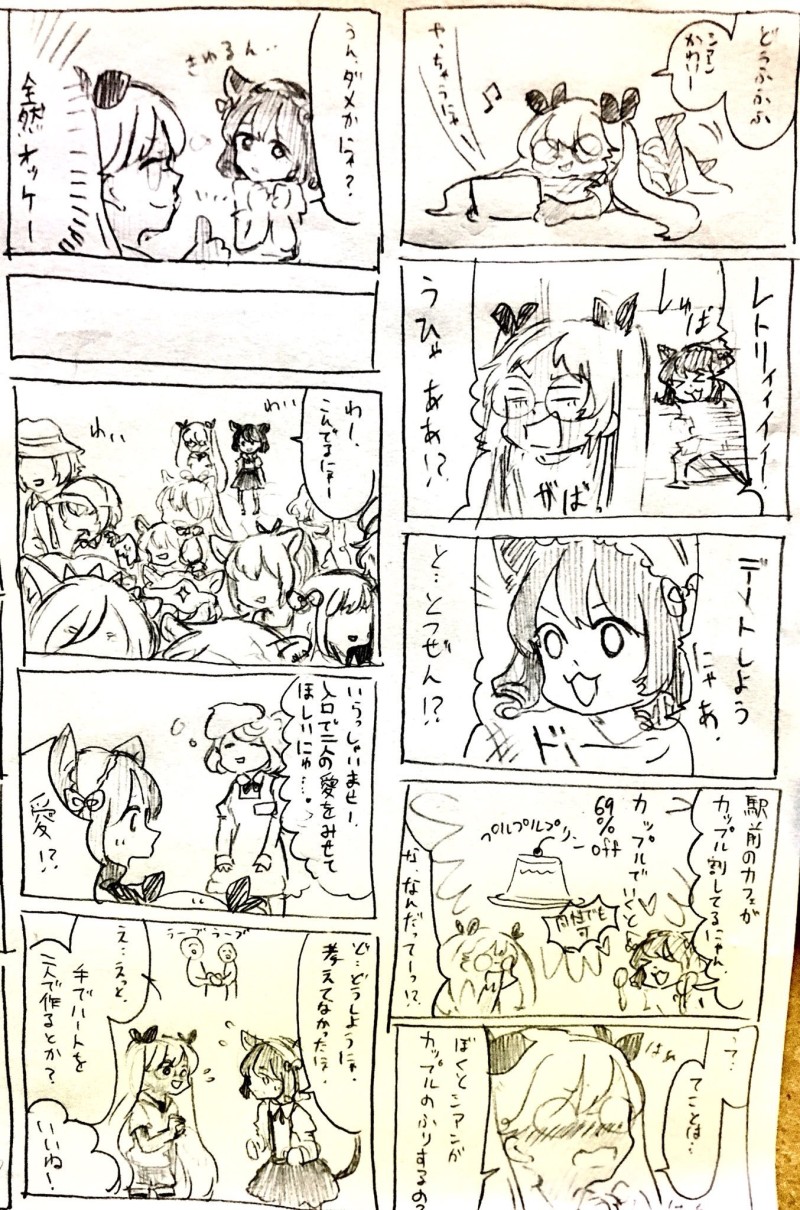 どぅふふふ
シアン
かわいー
やっちゃうにゃ
レトリィィィィ!
しゅば
うひゃあぁ!?
がば
デートしよう
にゃあ。
と…とつぜん!?
駅前のカフェが
カップル割してるにゃん。
カップルでいくと
69%off
プルプルプリン
同性でも
可
な、なんだってーっ!?
って…
てことは…
ぼくとシアンが
カップルのふりするの?
うん、ダメかにゃ?
きゅるん…
全然オッケー
わー、
こんでるにゃー
わいい
わいい
いらっしゃいませー、
入口で二人の愛をみせて
ほしいにゅ…
愛!?
ど…どうしようにゃ、
考えてなかったにゃ。
ラーブラーブ
え…えっと、
手でハートを
二人で作るとか?
いいね!